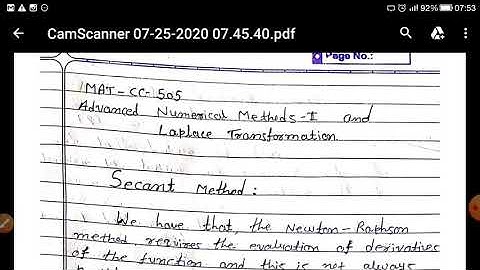 07:53
92%
CamScanner 07-25-2020 07.45.40.pdf
Page No.:
MAT-CC-505
Advanced Numerical Methods-I and
Laplace Transformation.
Secant Method:
We have that, the Newton-Raphson
method, requires the evaluation of derivatives
of the function and this is not always